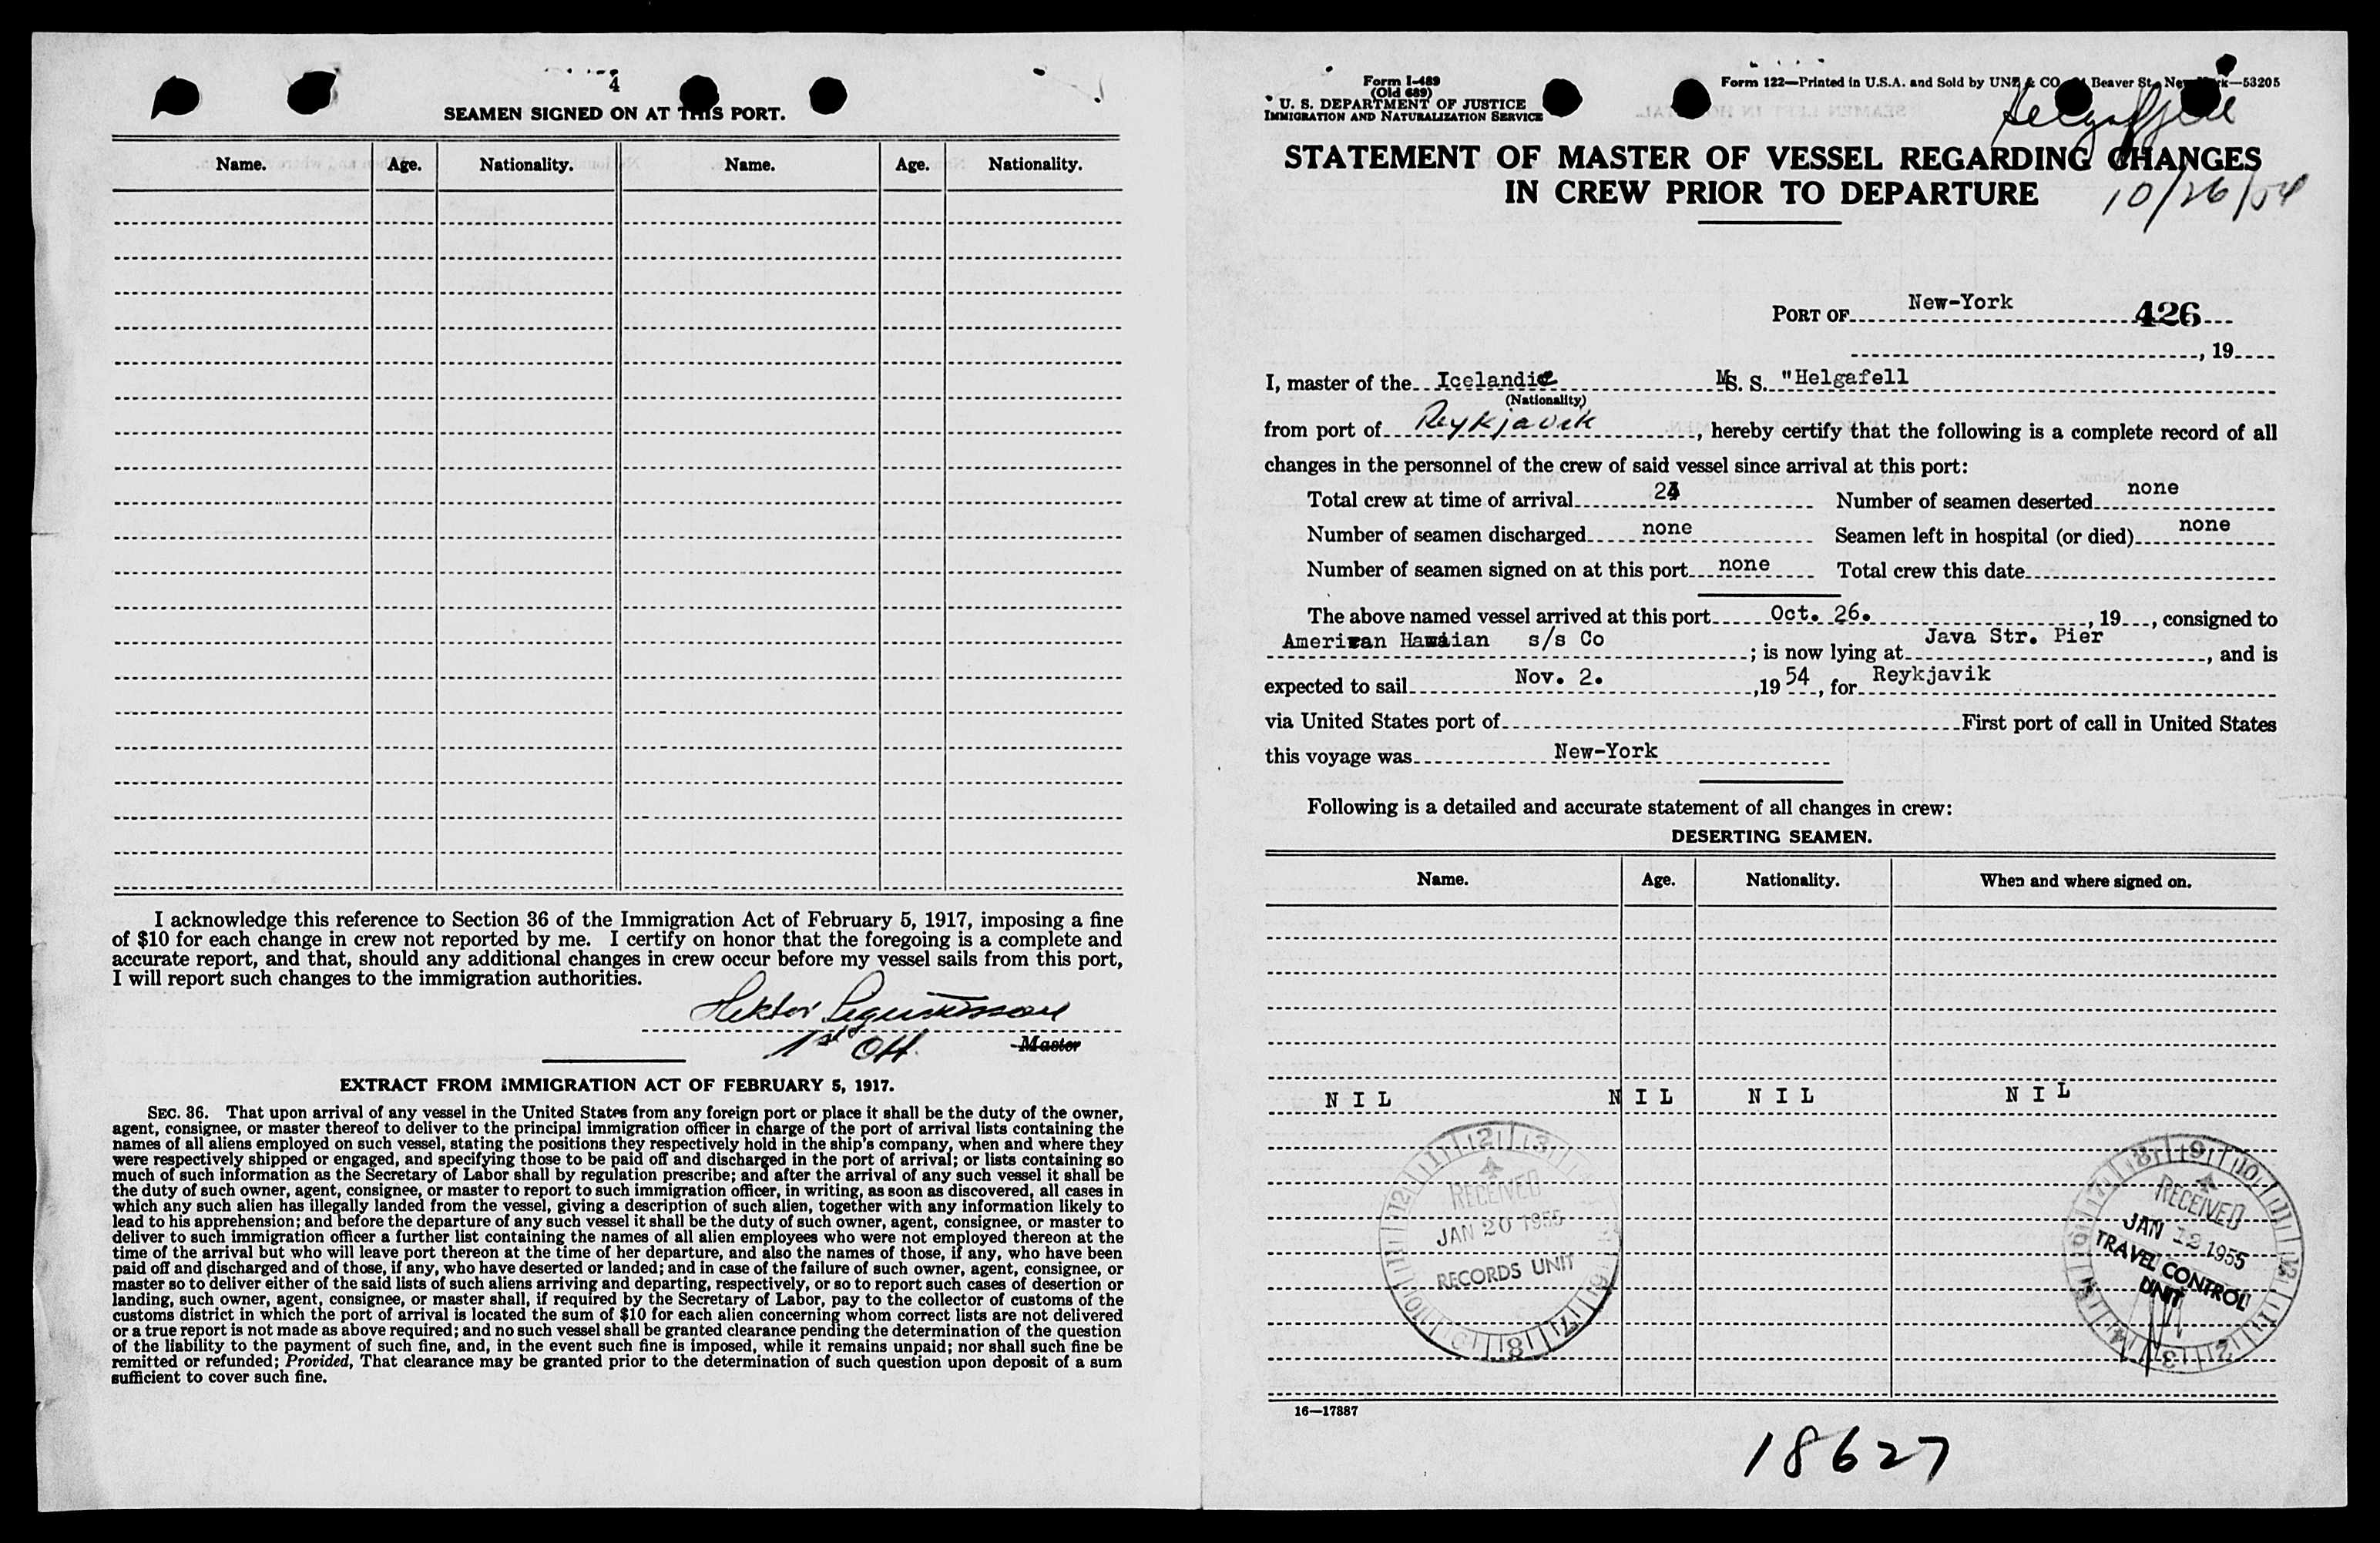 4
SEAMEN SIGNED ON AT THIS PORT.
Name. Age. Nationality. Name. Age. Nationality.
I acknowledge this reference to Section 36 of the Immigration Act of February 5, 1917, imposing a fine
of $10 for each change in crew not reported by me. I certify on honor that the foregoing is a complete and
accurate report, and that, should any additional changes in crew occur before my vessel sails from this port,
I will report such changes to the immigration authorities.
Hektor
1st Off. Master
EXTRACT FROM IMMIGRATION ACT OF FEBRUARY 5, 1917.
SEC. 36. That upon arrival of any vessel in the United States from any foreign port or place it shall be the duty of the owner,
agent, consignee, or master thereof to deliver to the principal immigration officer in charge of the port of arrival lists containing the
names of all aliens employed on such vessel, stating the positions they respectively hold in the ship's company, when and where they
were respectively shipped or engaged, and specifying those to be paid off and discharged in the port of arrival; or lists containing so
much of such information as the Secretary of Labor shall by regulation prescribe; and after the arrival of any such vessel it shall be
the duty of such owner, agent, consignee, or master to report to such immigration officer, in writing, as soon as discovered, all cases in
which any such alien has illegally landed from the vessel, giving a description of such alien, together with any information likely to
lead to his apprehension; and before the departure of any such vessel it shall be the duty of such owner, agent, consignee, or master to
deliver to such immigration officer a further list containing the names of all alien employees who were not employed thereon at the
time of the arrival but who will leave port thereon at the time of her departure, and also the names of those, if any, who have been
paid off and discharged and of those, if any, who have deserted or landed; and in case of the failure of such owner, agent, consignee, or
master so to deliver either of the said lists of such aliens arriving and departing, respectively, or so to report such cases of desertion or
landing, such owner, agent, consignee, or master shall, if required by the Secretary of Labor, pay to the collector of customs of the
customs district in which the port of arrival is located the sum of $10 for each alien concerning whom correct lists are not delivered
or a true report is not made as above required; and no such vessel shall be granted clearance pending the determination of the question
of the liability to the payment of such fine, and, in the event such fine is imposed, while it remains unpaid; nor shall such fine be
remitted or refunded; Provided, That clearance may be granted prior to the determination of such question upon deposit of a sum
sufficient to cover such fine.
Form I-489
(Old 689)
U. S. DEPARTMENT OF JUSTICE
IMMIGRATION AND NATURALIZATION SERVICE
Form 122—Printed in U.S.A. and Sold by UNZ & CO. Beaver St., New York—53205
Helgafjell
STATEMENT OF MASTER OF VESSEL REGARDING CHANGES
IN CREW PRIOR TO DEPARTURE
10/26/54
PORT OF New-York 426
, 19
I, master of the Icelandic MS. S. "Helgafell
(Nationality)
from port of Reykjavik, hereby certify that the following is a complete record of all
changes in the personnel of the crew of said vessel since arrival at this port:
Total crew at time of arrival Number of seamen deserted none
Number of seamen discharged none Seamen left in hospital (or died) none
Number of seamen signed on at this port none Total crew this date
The above named vessel arrived at this port Oct. 26. , 19 , consigned to
American Hawaiian s/s Co ; is now lying at Java Str. Pier , and is
expected to sail Nov. 2. ,19 54 , for Reykjavik
via United States port of First port of call in United States
this voyage was New-York
Following is a detailed and accurate statement of all changes in crew:
DESERTING SEAMEN.
Name. Age. Nationality. When and where signed on.
N I L N I L N I L N I L
RECEIVED
JAN 20 1955
RECORDS UNIT
RECEIVED
JAN 12 1955
TRAVEL CONTROL
UNIT
16—17887
18627